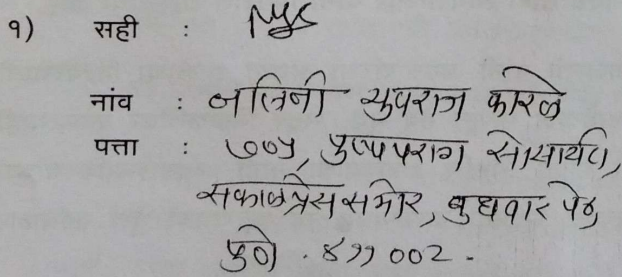 १) सही :
नांव : नलिनी युवराज कारले
पत्ता : ७७५, पुष्पपराग सोसायटी,
सकाळप्रेस समोर, बुधवार पेठ,
पुणे . ४११ ००२ .